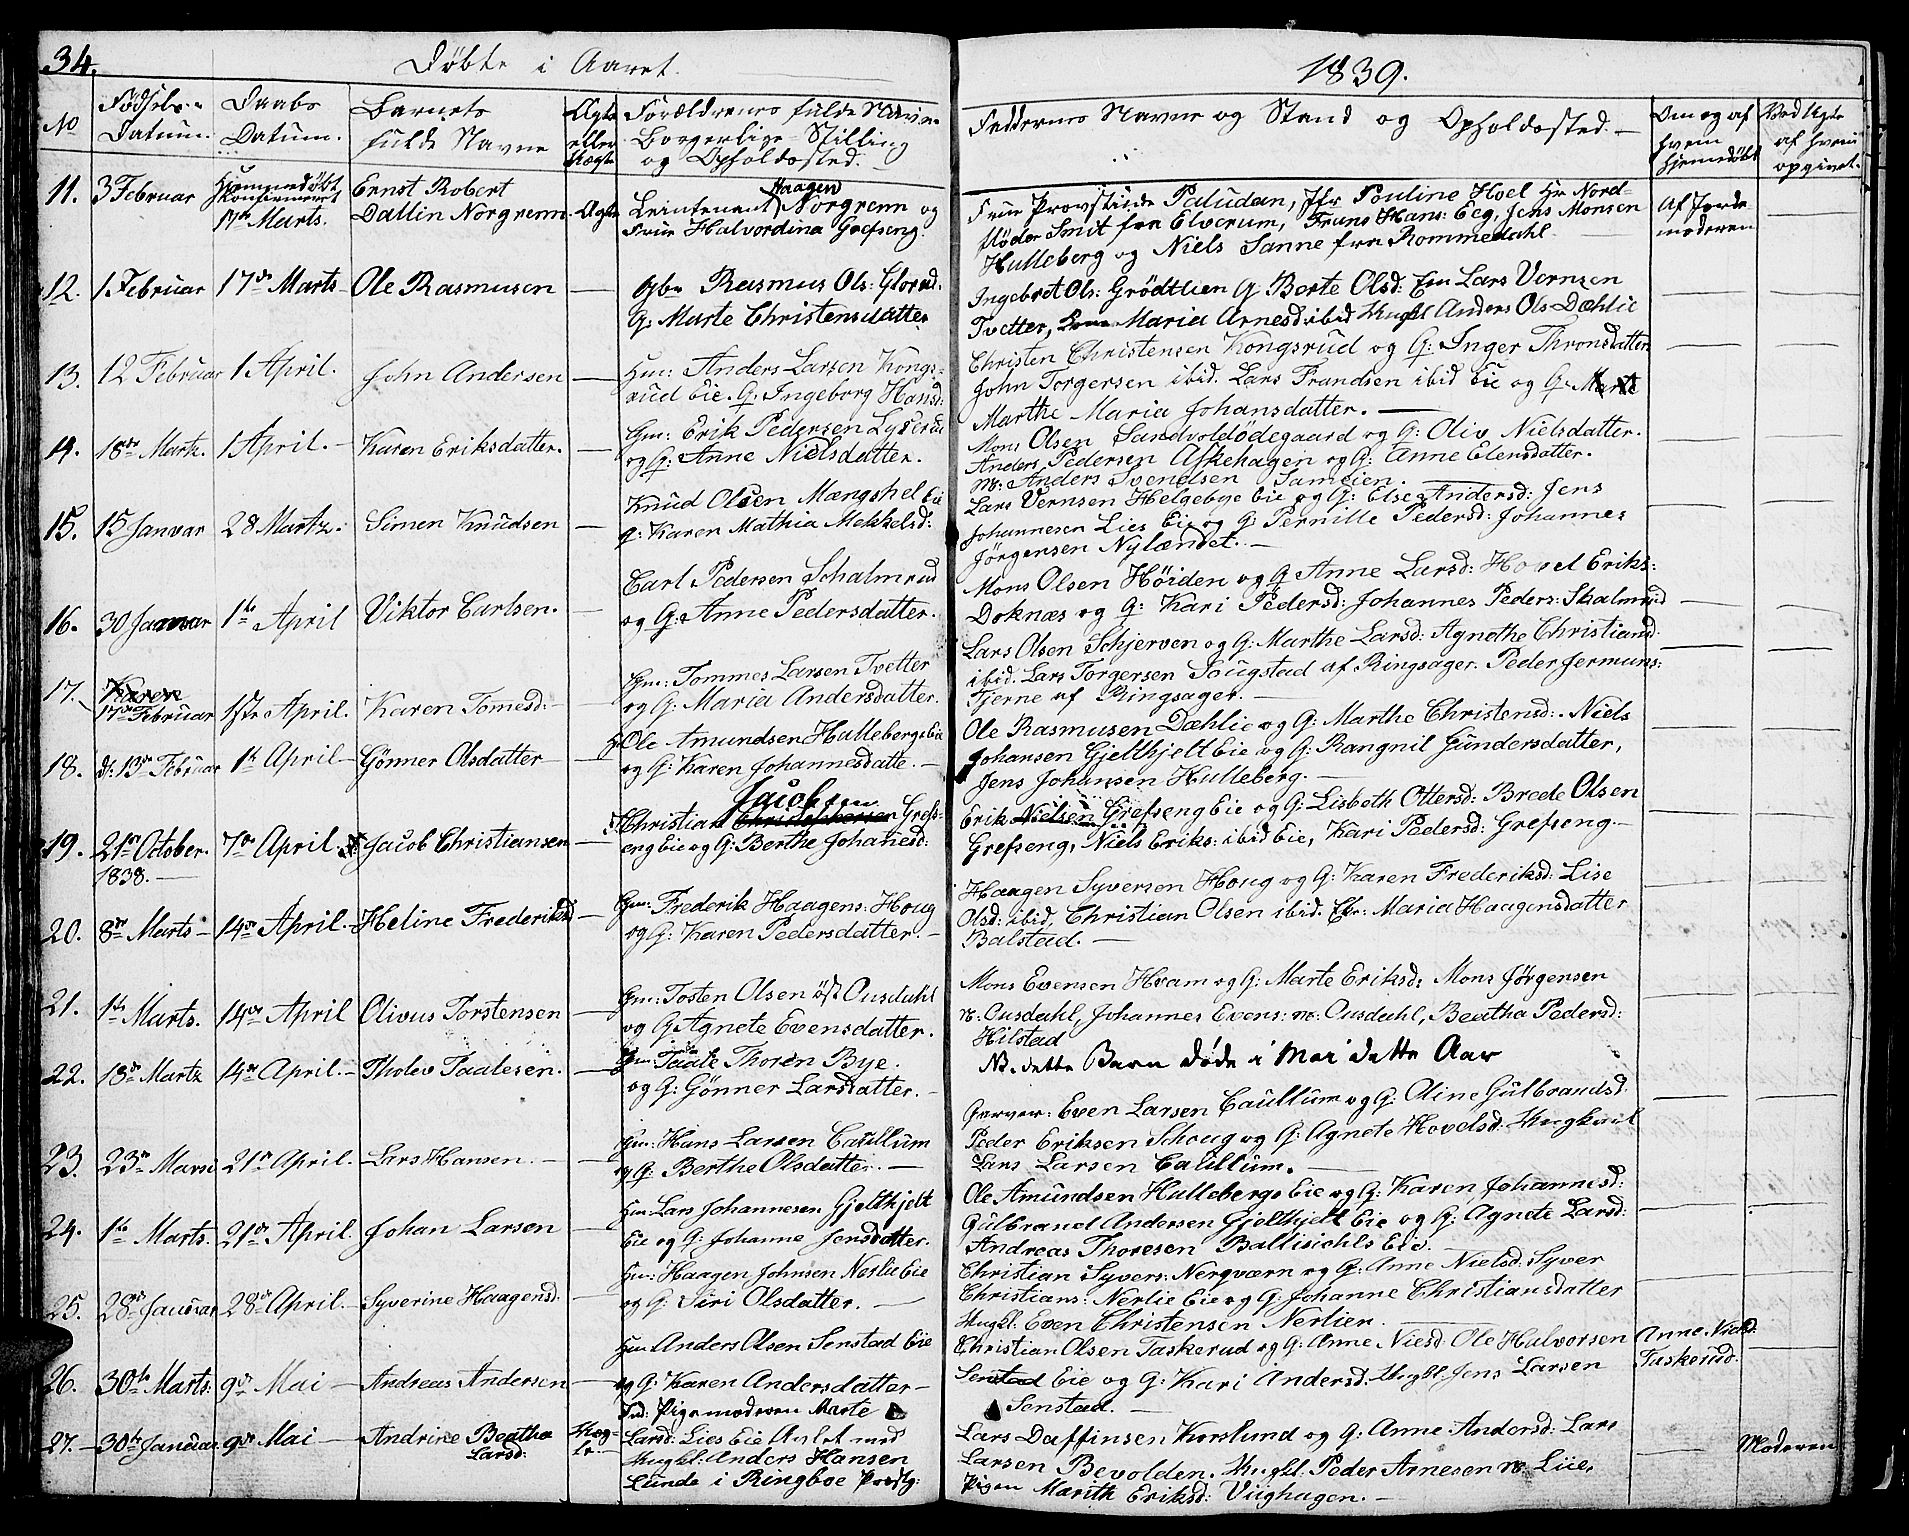 34.
Døbte i Aaret
1839.
No
Fødsels-
Datum.
Daabs
Datum.
Barnets
fulde Navne
Ægte
eller
Uægte
Forældrenes fulde Navne
Borgerlige Stilling
og Opholdssted.
Faddernes Navne og Stand og Opholdssted.
Om og af
hvem
hjemmedøbt
Ved Uægte
af hvem
opgivet.
11. 3 Februar
Hjemmedøbt
Konfirmeret
17de Marts.
Ernst Robert
Dallin Norgrenn.
Ægte
Haagen
Leutenant Norgrenn og
Frue Halvordina Grefseng.
Frue Provstinde Paludan, Jfr Pouline Hoel Hr Nord-
Smit fra Elverum, Frans Hans: Eeg, Jens Monsen
Hulleberg og Niels Sanne fra Rommedahl
Af Jorde-
moderen
12. 1 Februar 17de Marts Ole Rasmusen
Rasmus Ols: Glorud.
G: Marte Christensdatter
Ingebret Ols: Grödtlien G Berte Olsd: Lars Vernsen
Tvetter, Maria Arnesd: ibid Ungkl Anders Ols Dæhlie
13. 12 Februar 1 April. John Andersen
Gm: Anders Larsen Kongs-
rud Eie. G: Ingeborg Hansd:
Christen Christensen Kongsrud og G: Inger Thronsdatter
John Torgersen ibid. Lars Frandsen ibid Eie og G: Marte
Marthe Maria Johansdatter.
14. 18de Martz. 1 April. Karen Eriksdatter.
Gm: Erik Pedersen Lyserud
og G: Anne Nielsdatter.
Mons Olsen Sandvoldödegaard og G: Oliv Nielsdatter.
Anders Pedersen Askehagen og G: Anne Elensdatter.
Anders Svendsen Sameien.
15. 15 Januar 28 Martz. Simen Knudsen
Knud Olsen Mængshel Eie
G: Karen Mathia Mekkelsd:
Lars Vernsen Helgebye Eie og G: Else Andersd: Jens
Johannesen Lies Eie og G: Pernille Pedersd: Johannes
Jörgensen Nylændet.
16. 30 Januar 1ste April Viktor Carlsen.
Carl Pedersen Schalmrud
og G: Anne Pedersdatter.
Mons Olsen Höiden og G Anne Larsd: Hovel Eriks:
Doknæs og G: Kari Pedersd: Johannes Peders: Skalmrud
17. Karen
17de Februar 1ste April. Karen Tomesd:
Gm: Tommes Larsen Tvetter
og G: Maria Andersdatter.
Lars Olsen Schjerven og G: Marthe Larsd: Agnethe Christiansd:
ibid. Lars Torgersen Sougstad af Ringsager. Peder Jermuns:
Tjerne af Ringsager.
18. d: 13de Februar 1ste April Gönner Olsdatter
Ole Amundsen Hullebergs Eie
og G: Karen Johannesdatte.
Ole Rasmusen Dæhlie og G: Marthe Christensd: Niels
Johansen Gjeltkjelt Eie og G: Rangnil Gundersdatter,
Jens Johansen Hulleberg.
19. 21de October.
1838.
7de April. Jacob Christiansen
Jacobsen
Christian Christophersen Grefs-
eng Eie og G: Berthe Johanesd:
Erik Nielsen Grefseng Eie og G: Lisbeth Ottersd: Brede Olsen
Grefseng, Niels Eriks: ibid Eie, Kari Pedersd: Grefseng.
20. 8de Marts 14de April. Heline Frederiksd
Gm: Frederik Haagens: Houg
og G: Karen Pedersdatter.
Haagen Syversen Houg og G: Karen Frederiksd: Lise
Olsd: ibid. Christian Olsen ibid. Maria Haagensdatter
Balstad.
21. 1ste Marts. 14de April Olivus Torstensen
Gm: Tosten Olsen öst Ousdahl
og G Agnete Evensdatter.
Mons Evensen Hvam og G: Marte Eriksd: Mons Jörgensen
Ousdahl, Johannes Evens: Ousdahl, Beatha Pedersd:
Hilstad
22. 18de Martz 14de April. Tholev Taalesen.
Gm: Taale Thoren Bye.
og G: Gönner Larsdatter.
Nb. dette Barn døde i Mai dette Aar
23. 23de Marts 21de April. Lars Hansen.
Gm: Hans Larsen Caullum
og G: Berthe Olsdatter.
Even Larsen Caullum og G: Oline Gulbrandsd:
Peder Eriksen Schoug og G: Agnete Hovelsd:
Lars Larsen Caullum.
24. 1ste Marts. 21de April. Johan Larsen
Hm Lars Johannesen Gjeltkjelt
Eie og G: Johanne Jensdatter.
Ole Amundsen Hullebergs Eie og G: Karen Johannesd:
Gulbrand Andersen Gjeltkjelt Eie og G: Agnete Larsd:
Andreas Thoresen Ballisichls Eie.
25. 28de Januar 28de April. Syverine Haagensd:
Hm: Haagen Johnsen Neslie Eie
og G: Siri Olsdatter.
Christian Syvers: Nerqværn og G: Anne Nielsd: Syver
Christians: Nerlie Eie og G: Johanne Christiansdatter
Ungkl: Even Christensen Nerlien.
26. 30te Marts. 9de Mai Andreas Andersen
Hm Anders Olsen Senstad Eie
og G: Karen Andersdatter
Christian Olsen Taskerud og G: Anne Niesd: Ole Halvorsen
Senstad Eie og G: Kari Andersd: Ungkl: Jens Larsen
Senstad.
Anne Nielsd
Taskerud.
27. 30te Januar 9de Mai Andrine Beatha
Larsd:
Uæg-
te
Pigemoderen Marte
Larsd: Lies Eie Avlet med
Ungkl: Anders Hansen
Lunde i Ringboe Præstg:
Lars Daffinsen Korslund og G: Anne Andersd: Lars
Larsen Bevolden. Ungkl: Peder Arnesen Lie,
Pigen Marith Eriksd: Viighagen.
Moderen